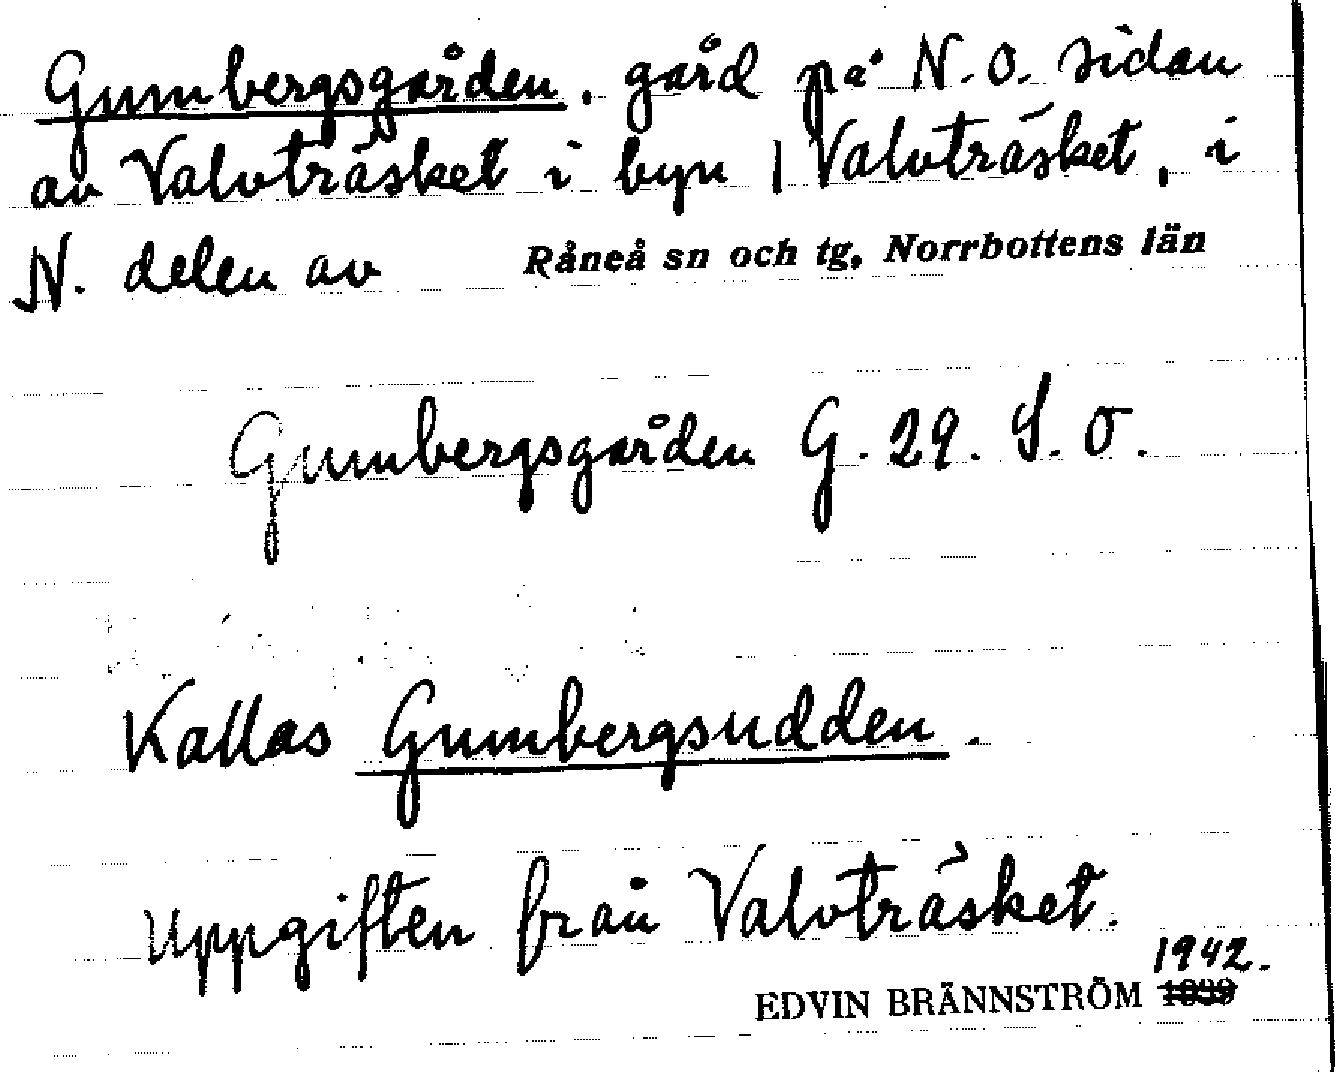 Gumbergsgården, gård på N.O. sidan
av Valvträsket i byn | Valvträsket, i
N. delen av Råneå sn och tg, Norrbottens län
Gumbergsgården G. 29. S.O.
Kallas Gumbergsudden.
Uppgiften från Valvträsket.
1942.
EDVIN BRÄNNSTRÖM 1939